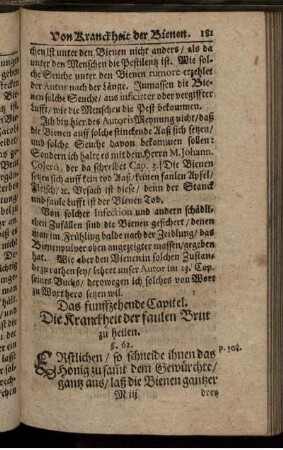 Von Kranckheit der Bienen. 181
chen ist unter den Bienen nicht anders / als da
unter den Menschen die Pestilentz ist. Wie sol-
che Seuche unter den Bienen rumore erzehlet
der Autor nach der Länge. Inmassen die Bie-
nen solche Seuche / aus inficirter oder vergiffter
Lufft / wie die Menschen die Pest bekommen.
Ich bin hier des Autoris Meynung nicht / daß
die Bienen auff solche stinckende Aaß sich setzen /
und solche Seuche davon bekommen sollen:
Sondern ich halte es mit dem Herrn M. Johann.
Colero, der da schreibet Cap. 2. Die Bienen
setzen sich auff kein tod Aaß / keinen faulen Apfel /
Fleisch / ꝛc. Ursach ist diese / denn der Stanck
und faule Lufft ist der Bienen Tod.
Von solcher Infection und andern schädli-
chen Zufällen sind die Bienen gesichert / denen
man im Frühling balde nach der Zeidlung / das
Bienenpulver oben angezeigter massen / gegeben
hat. Wie aber den Bienen in solchen Zustan-
de zu rathen sey / lehret unser Autor im 15. Cap.
seines Buchs / derowegen ich solches von Wort
zu Wort hero setzen wil.
Das funffzehende Capitel.
Die Kranckheit der faulen Brut
zu heilen.
§. 62.
ERstlichen / so schneide ihnen das p. 308.
Honig zu samt dem Gewürchte /
gantz aus / laß die Bienen gantzer
M iij drey